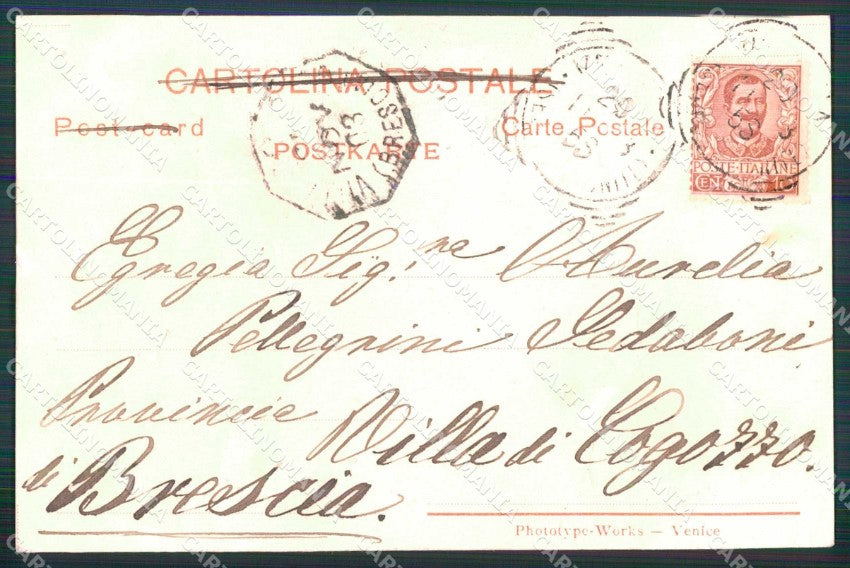 CARTOLINA POSTALE
Post-card
Carte Postale
POSTKARTE
POSTE ITALIANE
Egregia Sig.ra Aurelia
Pellegrini Gedaboni
Provincia Villa di Cogozzo.
di Brescia.
Phototype-Works — Venice
CARTOLINOMANIA